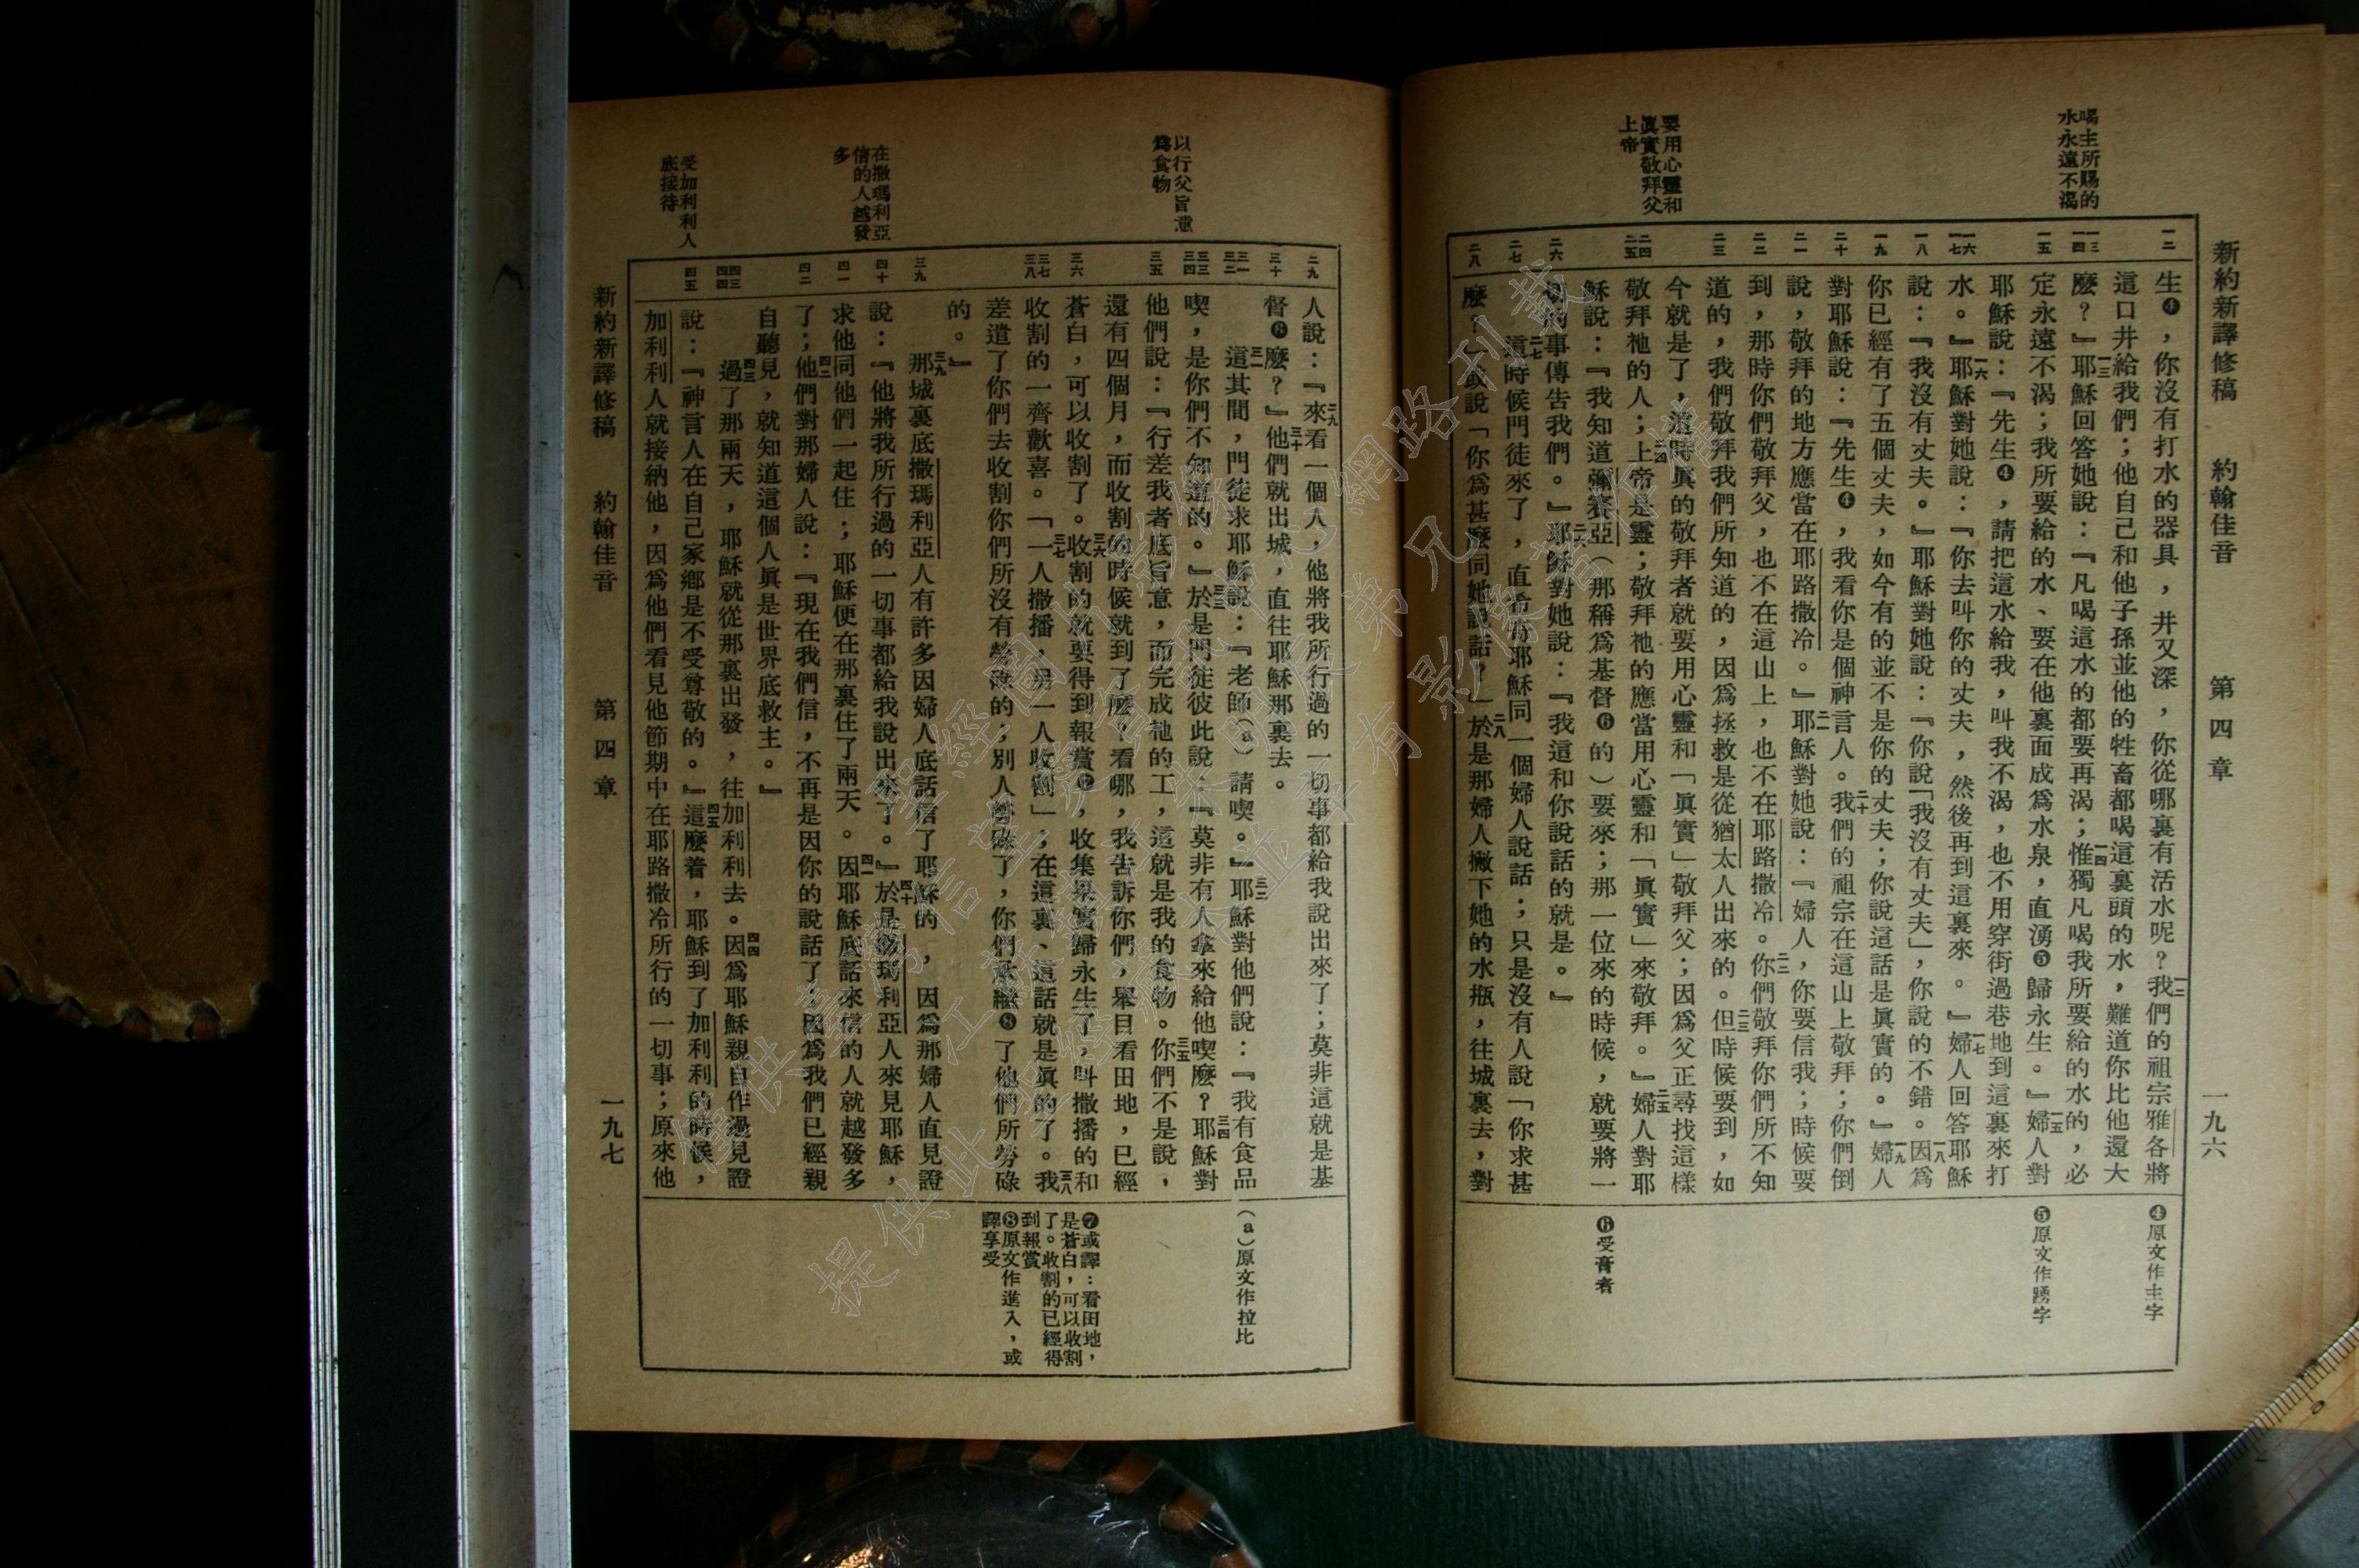 新約新譯修稿　約翰佳音　第四章　一九六
喝主所賜的
水永遠不渴
要用心靈和
眞實敬拜父
上帝
一二
一三
一四
一五
一六
一七
一八
一九
二十
二一
二二
二三
二四
二五
二六
二七
二八
生❹，你沒有打水的器具，井又深，你從哪裏有活水呢？一二我們的祖宗雅各將
這口井給我們；他自己和他子孫並他的牲畜都喝這裏頭的水，難道你比他還大
麼？』一三耶穌回答她說：『凡喝這水的都要再渴；一四惟獨凡喝我所要給的水的，必
定永遠不渴；我所要給的水、要在他裏面成爲水泉，直湧❺歸永生。』一五婦人對
耶穌說：『先生❹，請把這水給我，叫我不渴，也不用穿街過巷地到這裏來打
水。』一六耶穌對她說：『你去叫你的丈夫，然後再到這裏來。』一七婦人回答耶穌
說：『我沒有丈夫。』耶穌對她說：『你說「我沒有丈夫」，你說的不錯。一八因爲
你已經有了五個丈夫，如今有的並不是你的丈夫；你說這話是眞實的。』一九婦人
對耶穌說：『先生❹，我看你是個神言人。二十我們的祖宗在這山上敬拜；你們倒
說，敬拜的地方應當在耶路撒冷。』二一耶穌對她說：『婦人，你要信我；時候要
到，那時你們敬拜父，也不在這山上，也不在耶路撒冷。二二你們敬拜你們所不知
道的，我們敬拜我們所知道的，因爲拯救是從猶太人出來的。二三但時候要到，如
今就是了，這時眞的敬拜者就要用心靈和「眞實」敬拜父；因爲父正尋找這樣
敬拜祂的人；二四上帝是靈；敬拜祂的應當用心靈和「眞實」來敬拜。』二五婦人對耶
穌說：『我知道彌賽亞（那稱爲基督❻的）要來；那一位來的時候，就要將一
切的事傳告我們。』二六耶穌對她說：『我這和你說話的就是。』
二七這時候門徒來了，直希奇耶穌同一個婦人說話；只是沒有人說「你求甚
麼？」或說「你爲甚麼同她說話？」二八於是那婦人撇下她的水瓶，往城裏去，對
❹原文作主字
❺原文作踴字
❻受膏者
以行父旨意
爲食物
在撒瑪利亞
信的人越發
多
受加利利人
底接待
二九
三十
三一
三二
三三
三四
三五
三六
三七
三八
三九
四十
四一
四二
四三
四四
四五
人說：二九『來看一個人，他將我所行過的一切事都給我說出來了；莫非這就是基
督❻麼？』三十他們就出城，直往耶穌那裏去。
三一這其間，門徒求耶穌說：『老師（a）請喫。』三二耶穌對他們說：『我有食品
喫，是你們不知道的。』三三於是門徒彼此說：『莫非有人拿來給他喫麼？三四耶穌對
他們說：『行差我者底旨意，而完成祂的工，這就是我的食物。三五你們不是說，
還有四個月，而收割的時候就到了麼？看哪，我告訴你們，舉目看田地，已經
蒼白，可以收割了。三六收割的就要得到報賞❼，收集果實歸永生了，叫撒播的和
收割的一齊歡喜。三七「一人撒播，另一人收割」；在這裏、這話就是眞的了。三八我
差遣了你們去收割你們所沒有勞碌的；別人勞碌了，你們承繼❽了他們所勞碌
的。』
三九那城裏底撒瑪利亞人有許多因婦人底話信了耶穌的，因爲那婦人直見證
說：『他將我所行過的一切事都給我說出來了。』四十於是撒瑪利亞人來見耶穌，
求他同他們一起住；耶穌便在那裏住了兩天。四一因耶穌底話來信的人就越發多
了；四二他們對那婦人說：『現在我們信，不再是因你的說話了；因爲我們已經親
自聽見，就知道這個人眞是世界底救主。』
四三過了那兩天，耶穌就從那裏出發，往加利利去。四四因爲耶穌親自作過見證
說：『神言人在自己家鄉是不受尊敬的。』四五這麼着，耶穌到了加利利的時候，
加利利人就接納他，因爲他們看見他節期中在耶路撒冷所行的一切事；原來他
（a）原文作拉比
❼或譯：看田地，
是蒼白，可以收割
了。收割的已經得
到報賞
❽原文作進入，或
譯享受
新約新譯修稿　約翰佳音　第四章　一九七